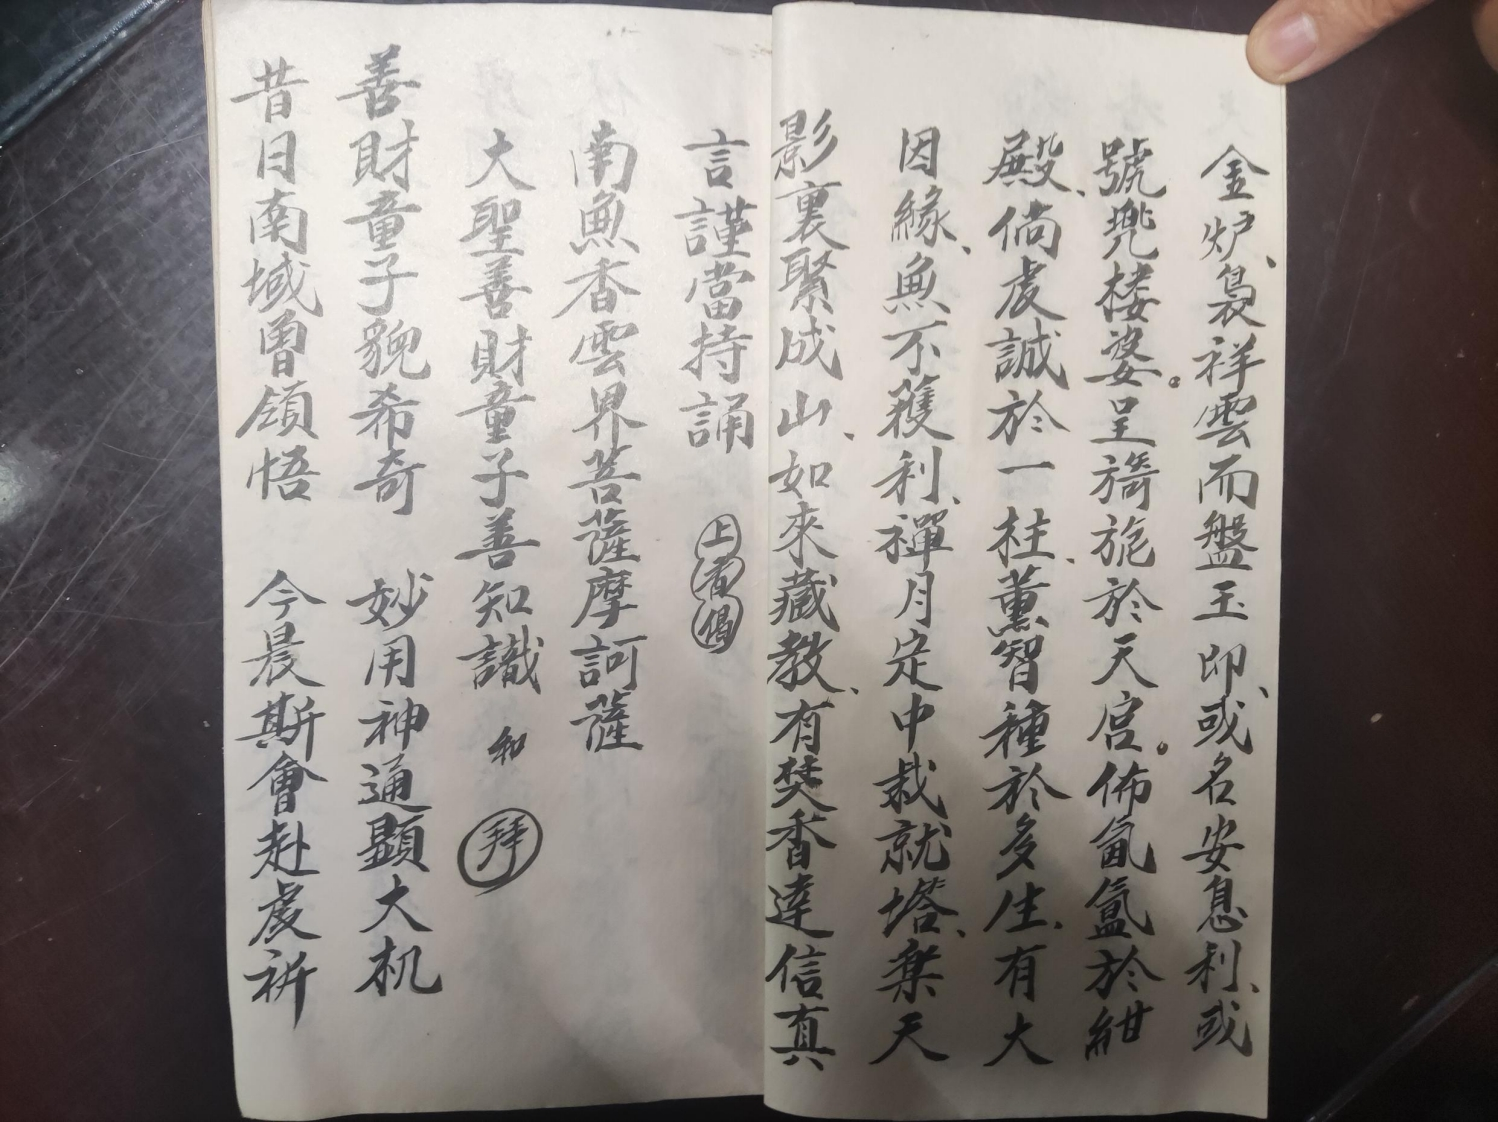 金炉、裊祥雲而盤玉印、或名安息利、或
號兠楼婆。呈旖旎於天宫。佈氤氲於紺
殿、倘虔誠於一柱、薫智種於多生、有大
因緣、魚不獲利、禪月定中裁就塔、楽天
影裏聚成山、如來藏教、有焚香達信真
言謹當持誦 上香偈
南魚香雲界菩薩摩訶薩
大聖善財童子善知識 和 拜
善財童子貌希奇 妙用神通顕大机
昔日南域曽領悟 今晨斯會赴虔祈